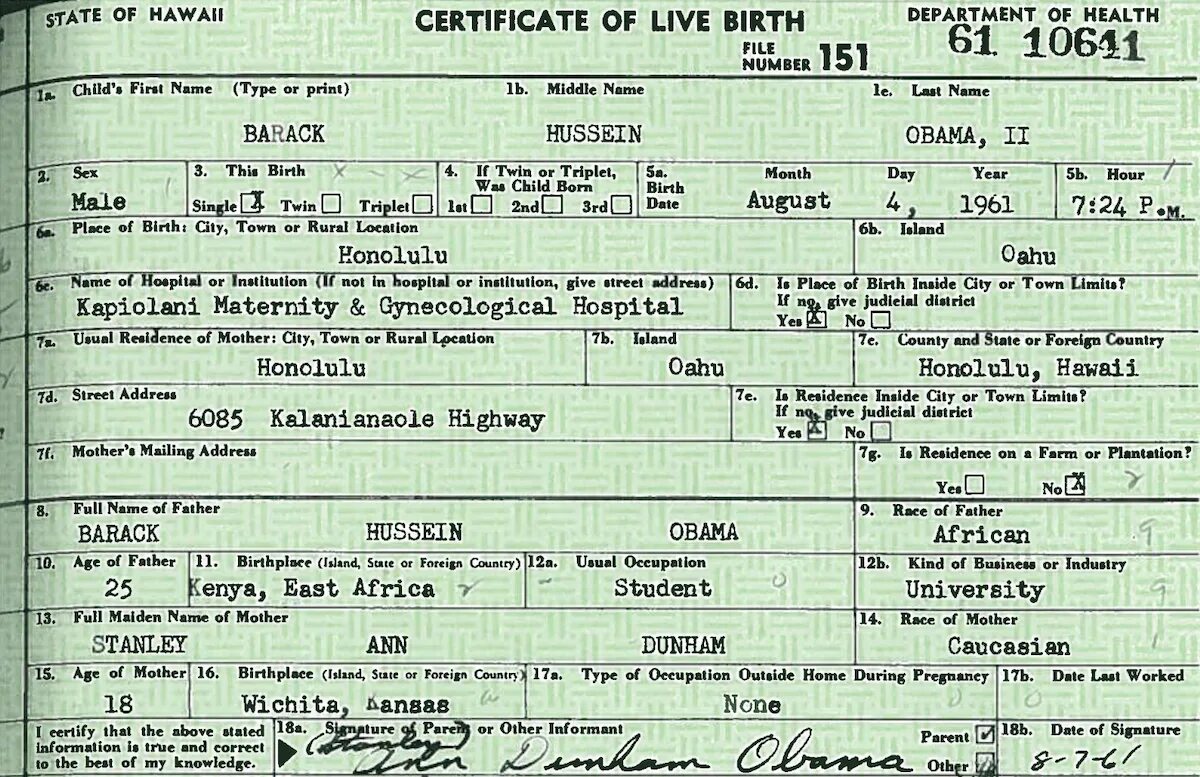 STATE OF HAWAII CERTIFICATE OF LIVE BIRTH DEPARTMENT OF HEALTH
FILE NUMBER 151 61 10641
1a. Child's First Name (Type or print) 1b. Middle Name 1c. Last Name
BARACK HUSSEIN OBAMA, II
2. Sex 3. This Birth 4. If Twin or Triplet, Was Child Born 5a. Birth Date Month Day Year 5b. Hour
Male Single X Twin Triplet 1st 2nd 3rd August 4, 1961 7:24 P.M.
6a. Place of Birth: City, Town or Rural Location 6b. Island
Honolulu Oahu
6c. Name of Hospital or Institution (If not in hospital or institution, give street address) 6d. Is Place of Birth Inside City or Town Limits?
If no, give judicial district
Kapiolani Maternity & Gynecological Hospital Yes X No
7a. Usual Residence of Mother: City, Town or Rural Location 7b. Island 7c. County and State or Foreign Country
Honolulu Oahu Honolulu, Hawaii
7d. Street Address 7e. Is Residence Inside City or Town Limits?
If no, give judicial district
6085 Kalanianaole Highway Yes X No
7f. Mother's Mailing Address 7g. Is Residence on a Farm or Plantation?
Yes No X
8. Full Name of Father 9. Race of Father
BARACK HUSSEIN OBAMA African
10. Age of Father 11. Birthplace (Island, State or Foreign Country) 12a. Usual Occupation 12b. Kind of Business or Industry
25 Kenya, East Africa Student University
13. Full Maiden Name of Mother 14. Race of Mother
STANLEY ANN DUNHAM Caucasian
15. Age of Mother 16. Birthplace (Island, State or Foreign Country) 17a. Type of Occupation Outside Home During Pregnancy 17b. Date Last Worked
18 Wichita, Kansas None
I certify that the above stated information is true and correct to the best of my knowledge. 18a. Signature of Parent or Other Informant Parent Other 18b. Date of Signature
(Stanley) Ann Dunham Obama 8-7-61